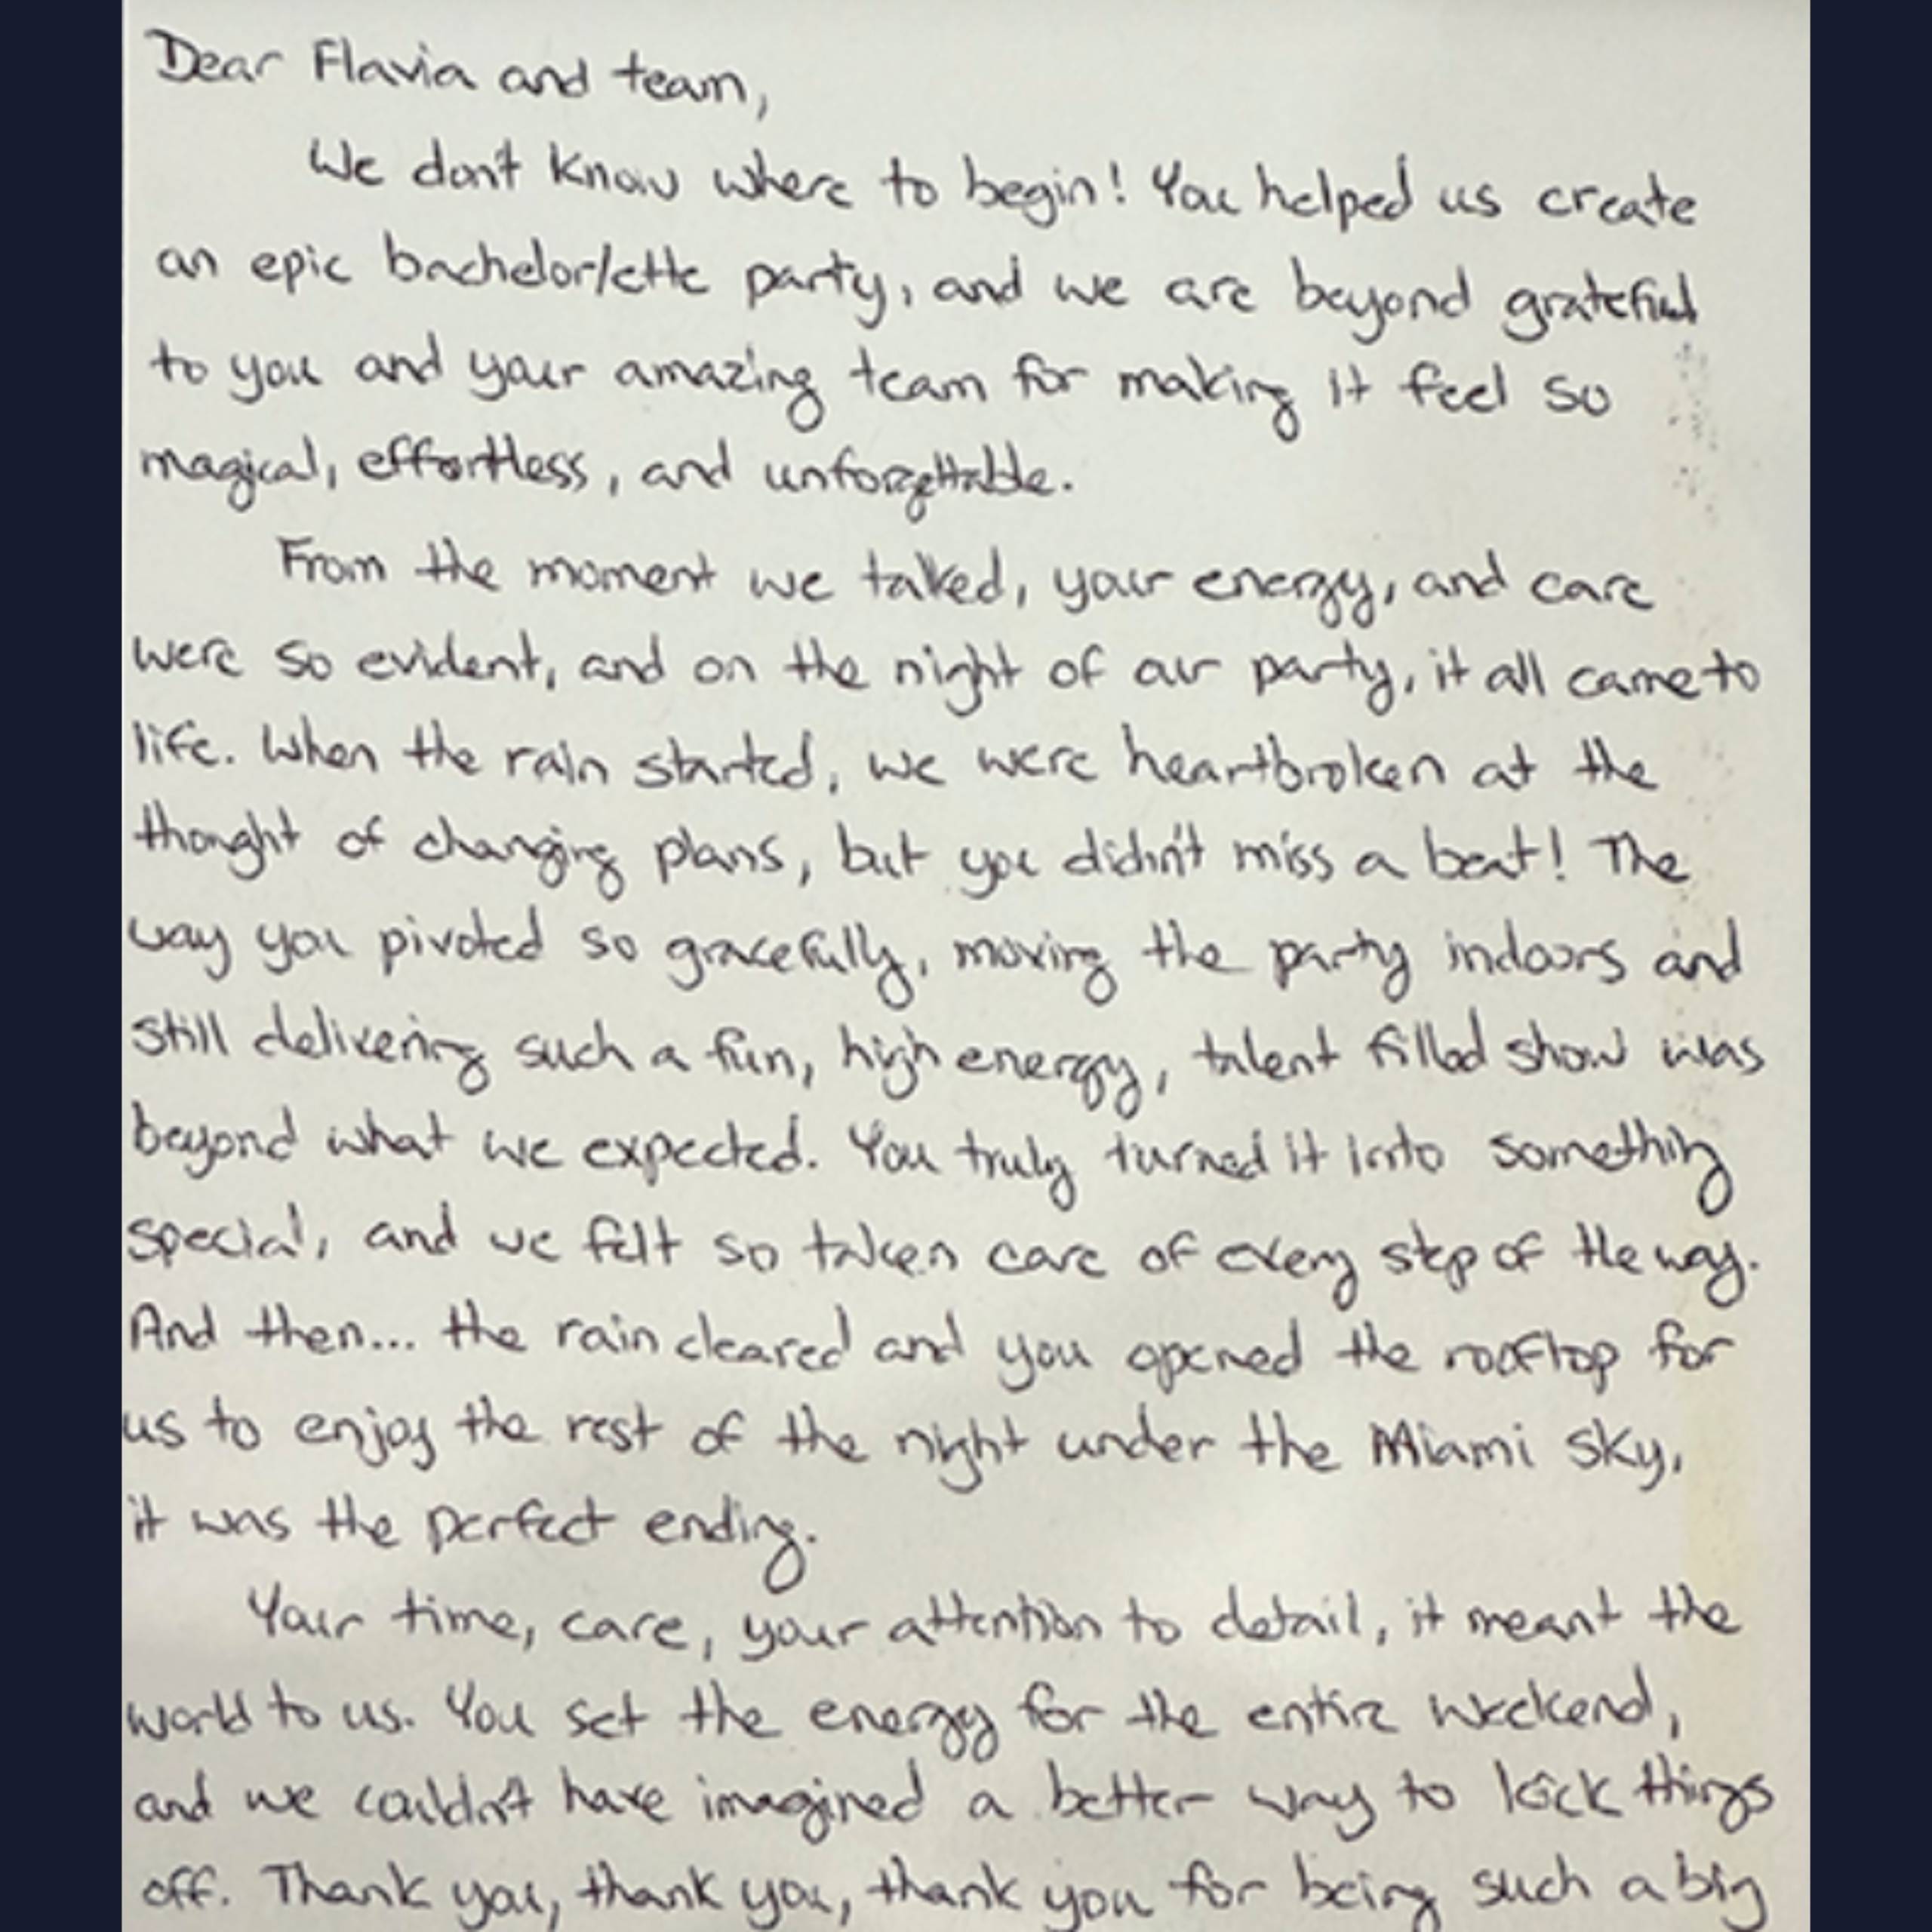 Dear Flavia and team,
We don't know where to begin! You helped us create
an epic bachelor/ette party, and we are beyond grateful
to you and your amazing team for making it feel so
magical, effortless, and unforgettable.
From the moment we talked, your energy, and care
were so evident, and on the night of our party, it all came to
life. When the rain started, we were heartbroken at the
thought of changing plans, but you didn't miss a beat! The
way you pivoted so gracefully, moving the party indoors and
still delivering such a fun, high energy, talent filled show was
beyond what we expected. You truly turned it into something
special, and we felt so taken care of every step of the way.
And then... the rain cleared and you opened the rooftop for
us to enjoy the rest of the night under the Miami sky,
it was the perfect ending.
Your time, care, your attention to detail, it meant the
world to us. You set the energy for the entire weekend,
and we couldn't have imagined a better way to kick things
off. Thank you, thank you, thank you for being such a big